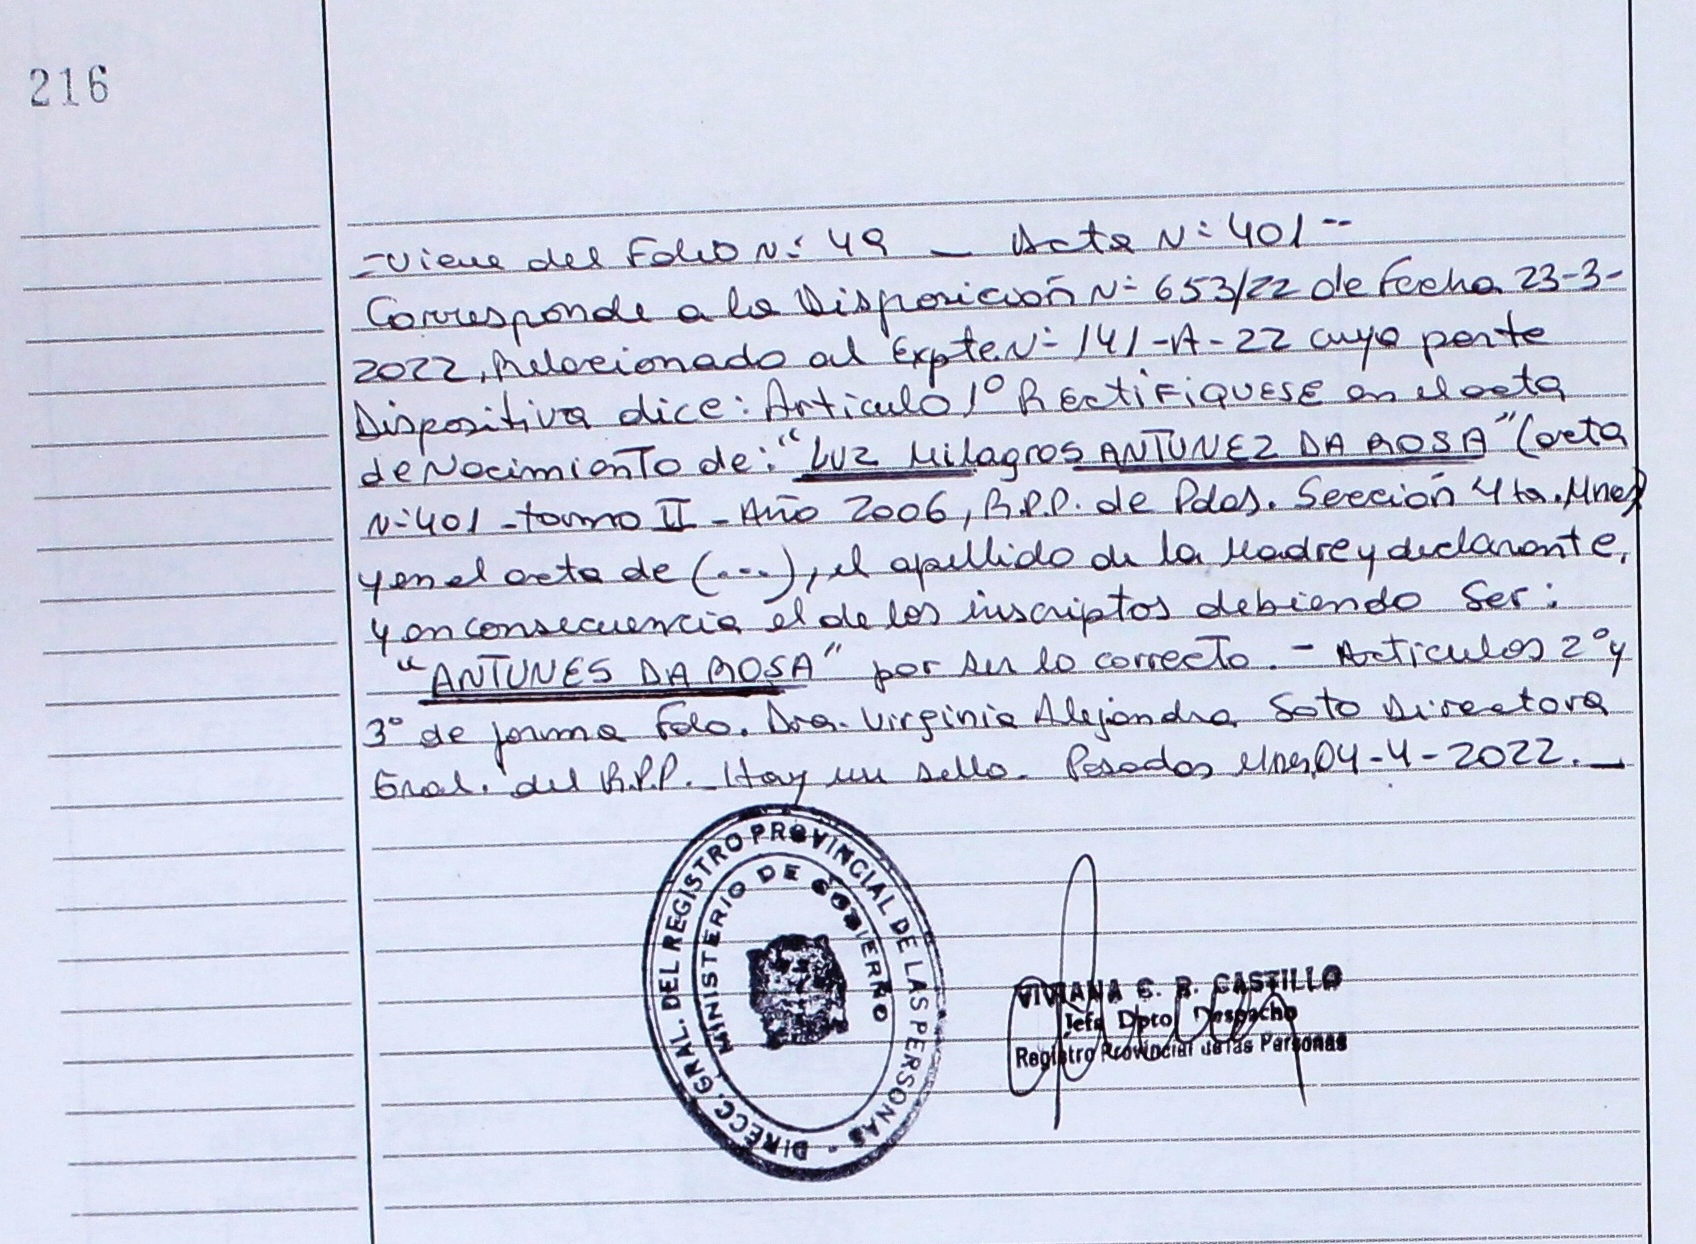 216
=Viene del Folio N: 49 _ Acta N: 401 --
Corresponde a la Disposición N: 653/22 de fecha 23-3-
2022, Relacionado al Expte. N: 141-A-22 cuya parte
Dispositiva dice: Artículo 1º RECTIFIQUESE en el acta
de Nacimiento de: "LUZ Milagros ANTUNEZ DA ROSA" (acta
N: 401 - tomo II - Año 2006, R.P.P. de Pdas. Sección 4ta. Mnes)
y en el acta de (...), el apellido de la Madre y declarante,
y en consecuencia el de los inscriptos debiendo Ser:
"ANTUNES DA ROSA" por ser lo correcto. - Artículos 2º y
3º de forma Fdo. Dra. Virginia Alejandra Soto Directora
Gral. del R.P.P. - Hay un sello. Posadas Mnes, 04-4-2022. _
DIRECC. GRAL. DEL REGISTRO PROVINCIAL DE LAS PERSONAS -
MINISTERIO DE GOBIERNO
VIVIANA C. R. CASTILLO
Jefa Dpto Despacho
Registro Provincial de las Personas